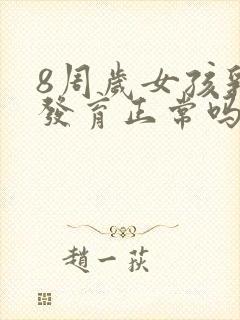 8周歲女孩乳
發育正常嗎
趙一荻